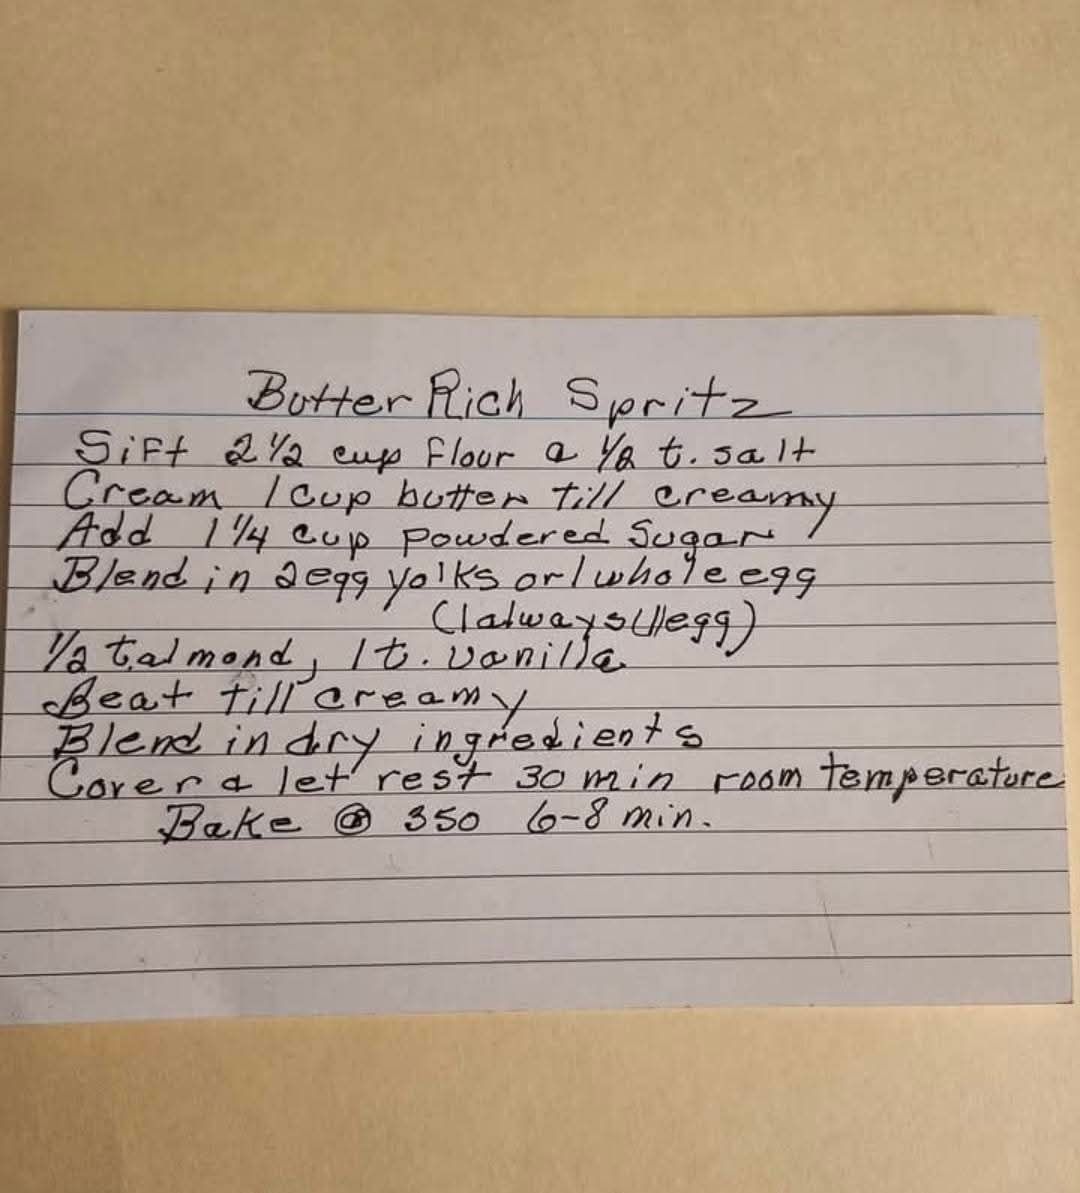 Butter Rich Spritz
Sift 2 1/2 cup flour & 1/2 t. salt
Cream 1 cup butter till creamy
Add 1 1/4 cup powdered Sugar
Blend in 2 egg yolks or 1 whole egg
(I always U 1 egg)
1/2 t. almond, 1 t. vanilla
Beat till creamy
Blend in dry ingredients
Cover & let rest 30 min room temperature
Bake @ 350 6-8 min.